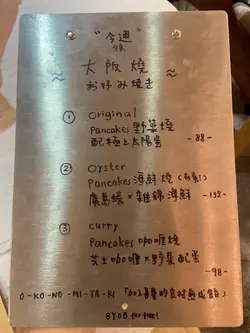 "今週
大阪燒
お好み焼き
① original
Pancakes 野菜燒
配極上太陽蛋
-88-
② Oyster
Pancakes 海鮮燒
廣島蠔×雜錦海鮮
-138-
③ curry
Pancakes 咖喱燒
芝士咖喱×野菜配蛋
-98-
O-KO-NO-MI-YA-KI
BYOB for free!